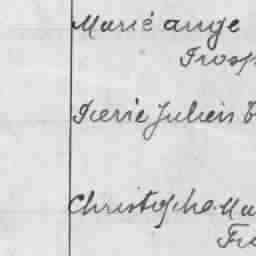 Marie ange
Prosp
Pierre Julien
Christophe Ma